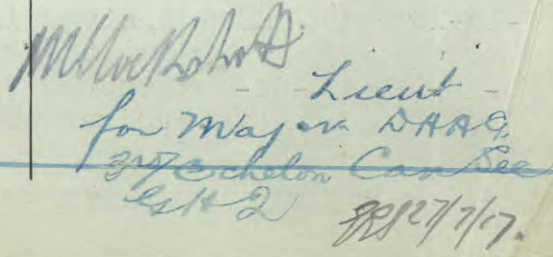 Lieut
for Major DAAG.
3rd Echelon Can Sec
GHQ
27/7/17.